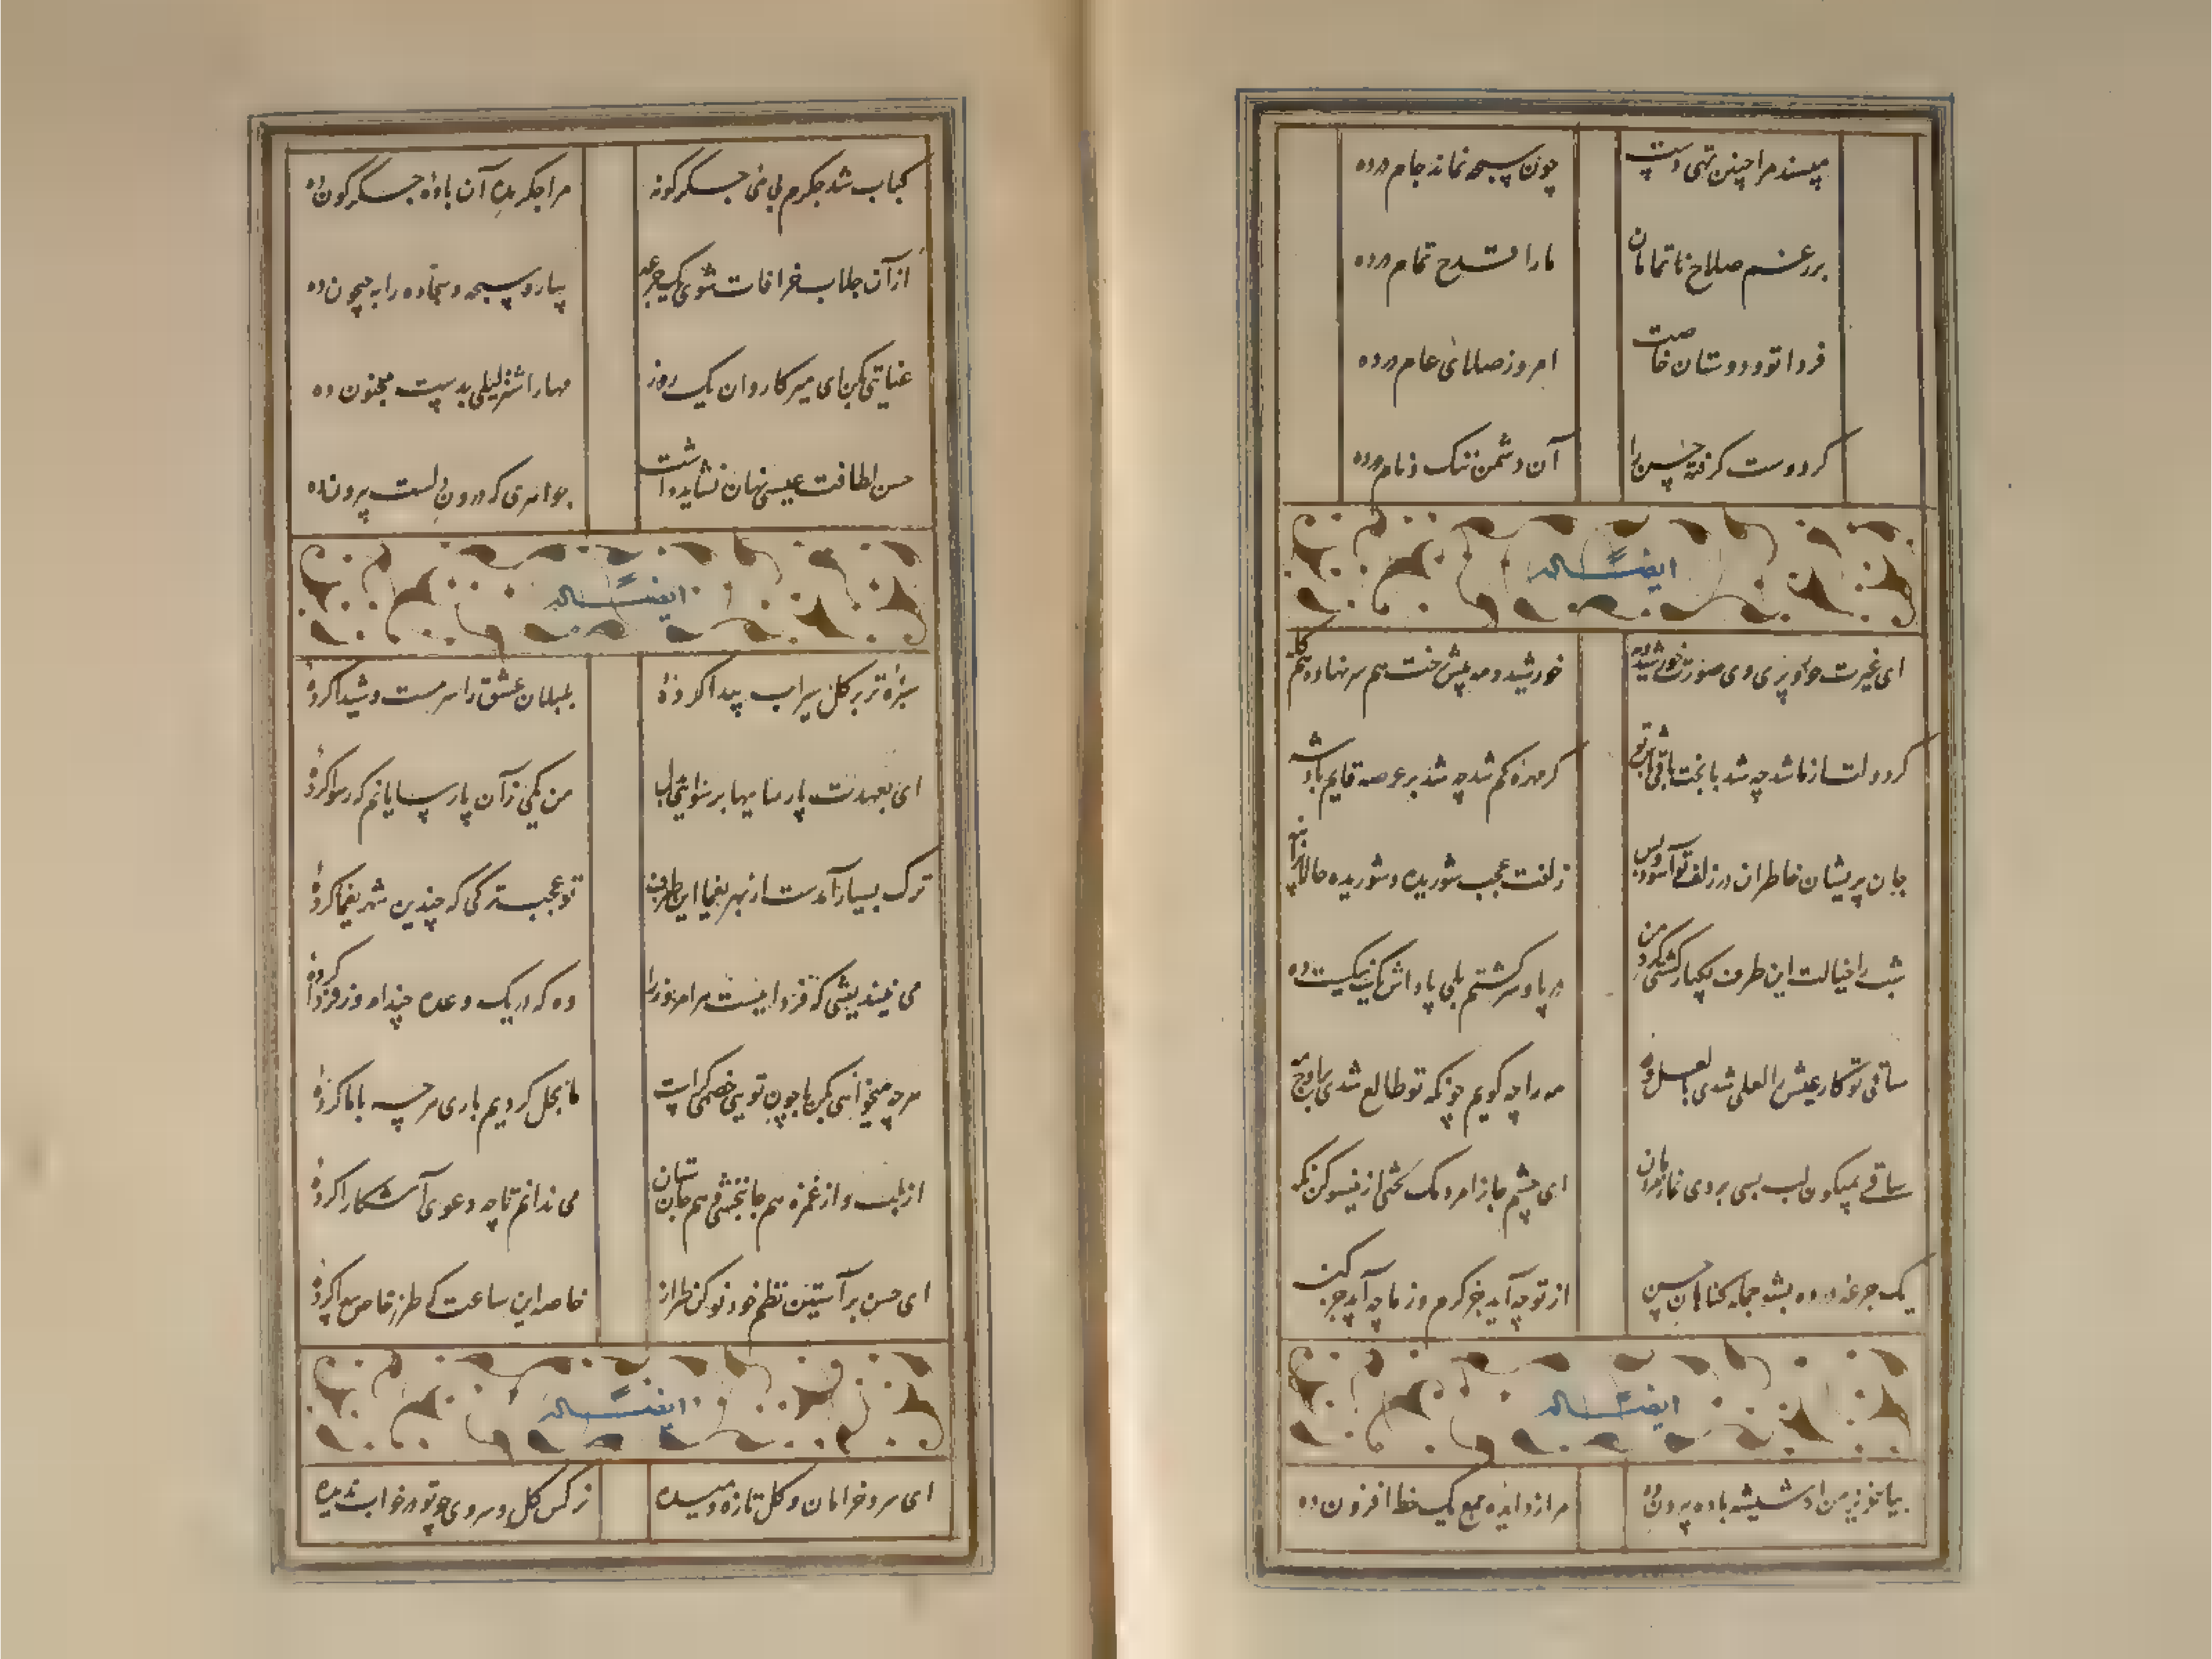 مپسند مرا چنین تهی دست چون سبحه نماند جام در ده
بر رغم صلاح ناتمامان ما را قدح تمام در ده
فردا تو و دوستان خاصت امروز صلای عام در ده
کر دوست کرفته حسن را آن دشمن ننک و نام در ده
ایضاً له
ای غیرت حور و پری وی صورت خورشید و مه خورشید و مه پیش رخت هم سر نهاده هم کله
کر دولت از ما شد چه شد با بخت باقی باش تو کر مهره کم شد چه شد بر عرصه قایم باد شه
جان پریشان خاطران در زلف تو آسود و بس زلفت عجب شوریده و شوریده حالان را پنه
شب را خیالت این طرف یکبار کشتی کرد من در پا و سر کشتم بلی پاداش نیکیست ده
ساقی تو کار عیش را لعلی شدی بالعل وه مه را چه کویم چونکه تو طالع شدی
ساقی میکون لب بسی بر وی ای چشم جانرا مردمک
یک جرعه در ده بشد جمله کناهان حسن از تو چه آید جز کرم وز ما چه آید جز کنه
ایضاً له
بیا نخوبر من از شیشه باده بیرون ده مرا ز دایره جمع یک خط افزون ده
کباب شد جکرم بی می جکر کونه مرا جکر بده آن باده جکر کون ده
از آن جلاب خرافات شوی یک جرعه بیار و سبحه و سجاده را به جیحون ده
عنایتی بکن ای میر کاروان یک روز مهار اشتر لیلی بدست مجنون ده
حسن لطافت عیسی نهان نشاید داشت جواهری که درون دلست بیرون ده
ایضاً له
سبزه تر بر کل سیراب پیدا کرده بلبلان عشق را سرمست و شیدا کرده
ای بعهدت پارساییها برسوایی بدل من یکی زآن پارسایانم که رسوا کرده
ترک بسیار آمدست از بهر یغما این طرف تو عجب ترکی که چندین شهر یغما کرده
می نیندیشی که فردا نیست مر امروز را وه که در یک وعده چند امروز فردا کرده
هر چه میخواهی بکن با چون تویی خصمی کراست ما بحل کردیم باری هر چه با ما کرده
از لب و از غمزه هم جانبخشی و هم جان ستان می ندانم تا چه دعوی آشکارا کرده
ای حسن بر آستین نظم خود نو کن طراز خاصه این ساعت که طرز خاص پیدا کرده
ایضاً له
ای سرو خرامان و کل تازه دمیده نرکس کل و سروی چو تو در خواب ندیده